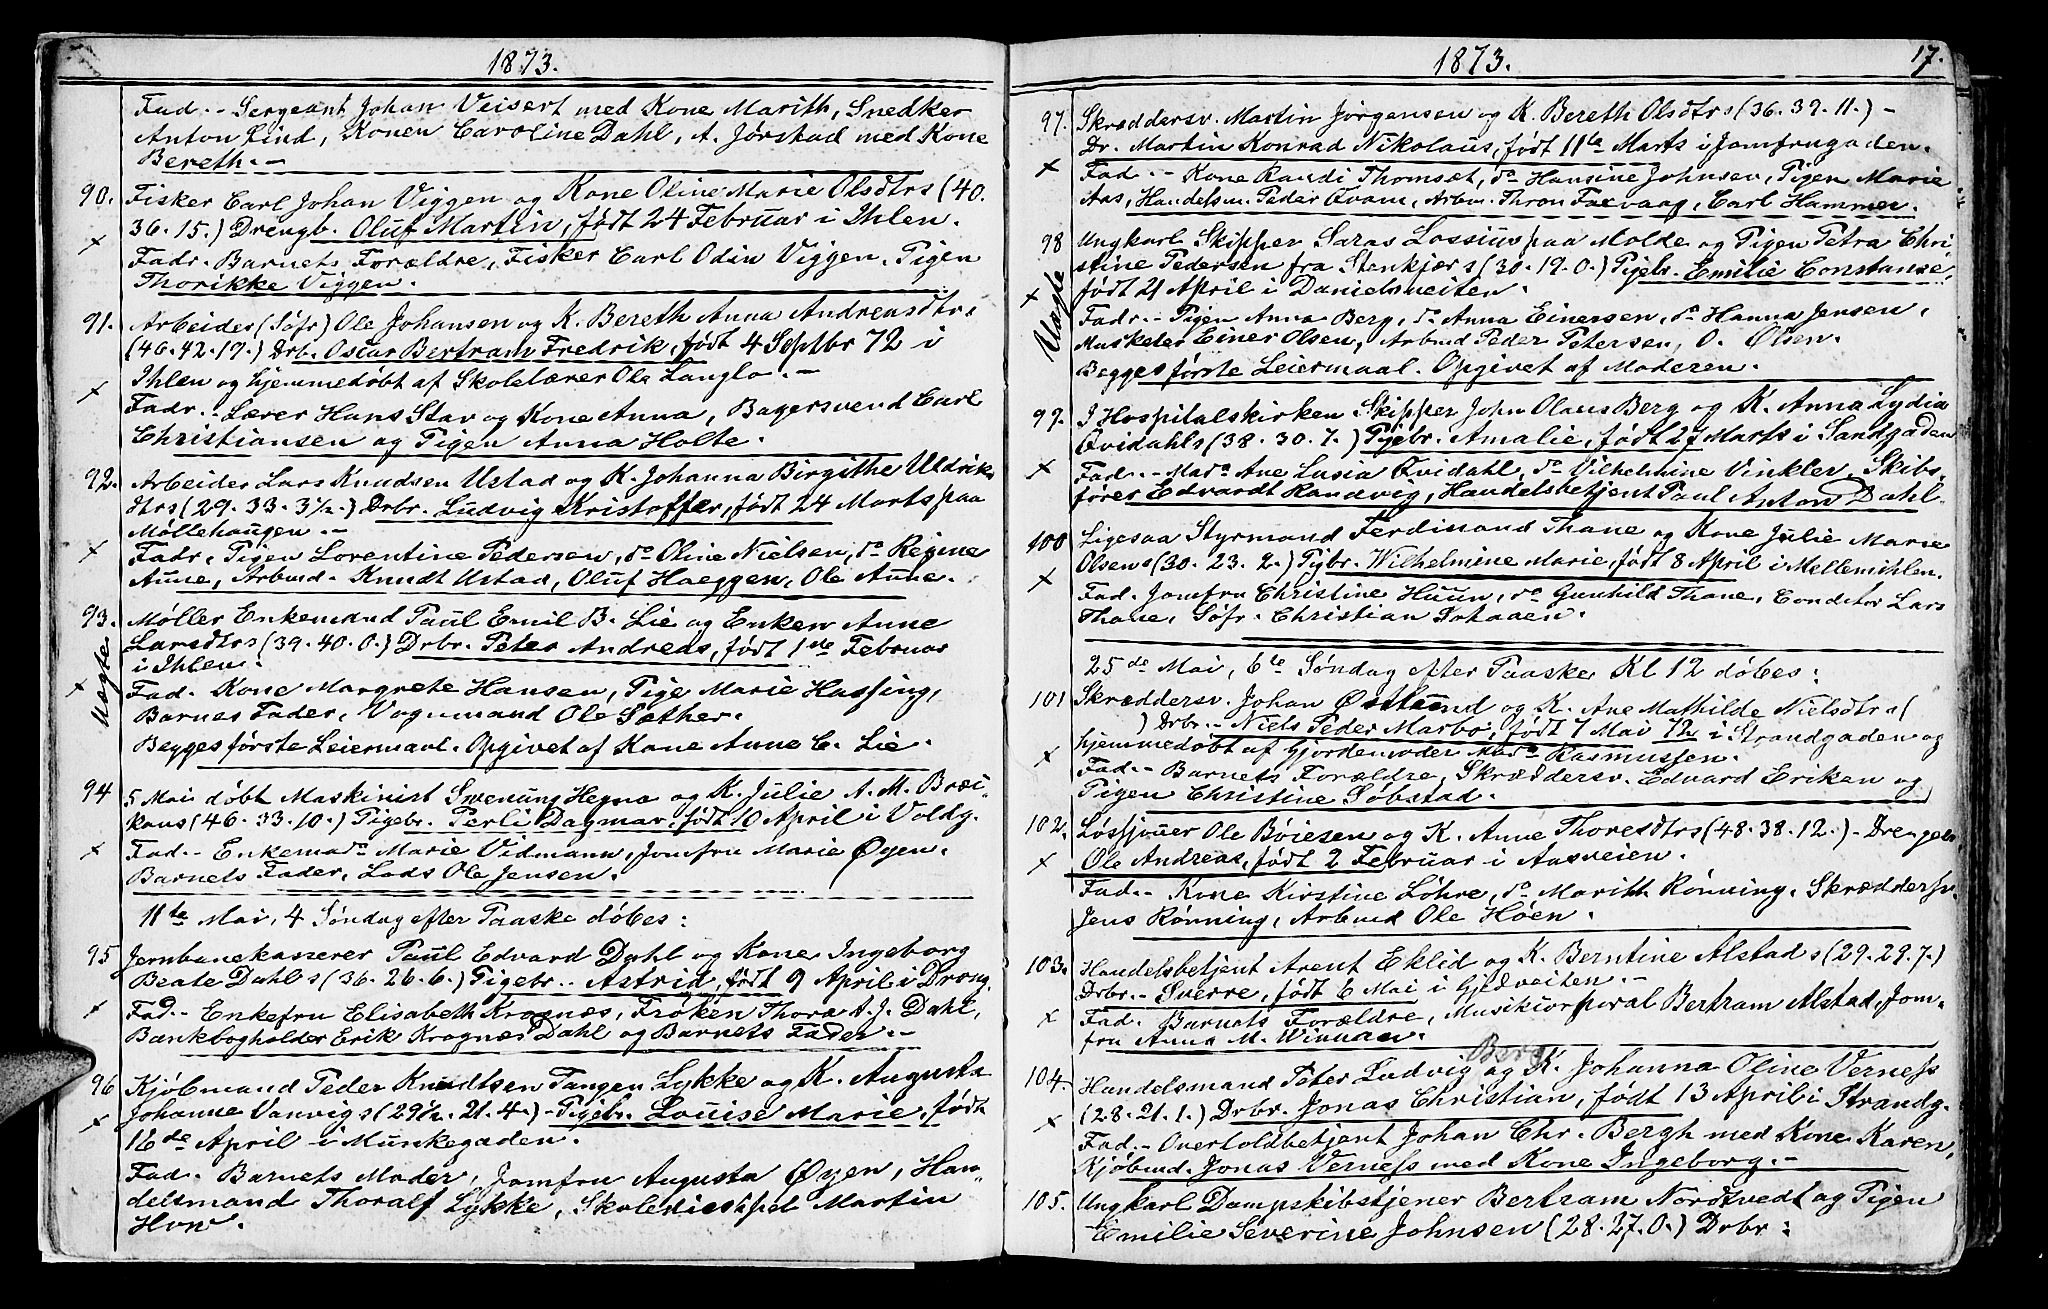 1873.
Fad.- Sergeant Johan Veisert med Kone Marith, Snedker
Anton Lind, Konen Caroline Dahl, A. Jørstad med Kone
Bereth.-
90. Fisker Carl Johan Viggen og Kone Oline Marie Olsdtr s (40.
36.15.) Drengb. Oluf Martin, født 24 Februar i Ihlen.
x Fadr. Barnets Forældre, Fisker Carl Odin Viggen. Pigen
Thorikke Viggen.
91. Arbeider (Søfr) Ole Johansen og K. Bereth Anna Andreasdtr s
(46.42.17.) Drb. Oscar Bertram Fredrik, født 4 Septbr 72 i
x Ihlen og hjemmedøbt af Skolelærer Ole Langlo.-
Fadr.- Lærer Hans Stav og Kone Anna, Bagersvend Carl
Christiansen og Pigen Anna Holte.
92. Arbeider Lars Knudsen Ustad og K. Johanna Birgithe Uldriks
dtr s (29.33.3½.) Drbr. Ludvig Kristoffer, født 24 Marts paa
Møllehaugen.-
x Fadr. Pigen Lorentine Pedersen, do Oline Nielsen, do Regine
Aune, Arbmd. Knudt Ustad, Oluf Haeggen, Ole Aune.
93. Møller Enkemand Paul Emil B. Lie og Enken Anne
Uægte Larsdtr s (39.40.0.) Drbr. Peter Andreas, født 1ste Februar
i Ihlen.
x Fad. Kone Margrete Hansen, Pige Marie Hassing,
Barnes Fader, Vognmand Ole Sæther.
Begges første Leiermaal. Opgivet af Kone Anne C. Lie.
94 5 Mai døbt Maskinist Swenung Hegna og K. Julie A. M. Bræi-
kans (46.33.10.) Pigebr. Perli Dagmar, født 10 April i Voldg.
x Fad.- Enkemado Marie Vidmann, Jomfru Marie Øyen.
Barnets Fader, Lods Ole Jensen.
11te Mai, 4 Søndag efter Paaske døbes:
95 Jernbanekasserer Paul Edvard Dahl og Kone Ingeborg
Beate Dahl s (36.26.6.) Pigebr.. Astrid, født 9 April i Drong.
x Fad.- Enkefru Elisabeth Krognæs, Frøken Thora A. J. Dahl,
Bankbogholder Erik Krognæs Dahl og Barnets Fader.-
96 Kjøbmand Peder Knudtsen Tangen Lykke og K. Augusta
x Johanne Vanvig s (29½.21.4.)- Pigebr. Louise Marie, født
16de April i Munkegaden.
Fad. Barnets Moder, Jomfru Augusta Øyen, Han-
delsmand Thoralf Lykke, Martin
How.
1873. 17.
97. Skræddersv. Martin Jørgensen og K. Bereth Olsdtr s (36.39.11.)-
Dr. Martin Konrad Nikolaus, født 11te Marts i Jomfrugaden.
x Fad.- Kone Randi Thomsæt, do Hansine Johnsen, Pigen Marie
Aas, Handelsm. Peder Qvam, Arbm. Thron Faxvaag, Carl Hammer.
98 Ungkarl Skipper Saras Lossius paa Molde og Pigen Petra Chri-
Uægte stine Pedersen fra Stenkjær s (30.19.0.) Pigebr. Emilie Constanse,
x født 21 April i Danielsveiten.
Fadr.- Pigen Anna Berg, do Anna Einersen, do Hanna Jensen,
Musketer Einer Olsen, Arbmd Peder Petersen, O. Olsen.
Begges første Leiermaal. Opgivet af Moderen.
99. I Hospitalskirken Skipper John Olaus Berg og K. Anna Lydia
Qvidahl s (38.30.7.) Pigebr. Amalie, født 27 Marts i Sandgaden
x Fad.- Mado Ane Lusia Qvidahl, do Vilhelmine Vinkler, Skibs-
fører Edvardt Randvig, Handelsbetjent Paul Anton Dahl
100 Ligesaa Styrmand Ferdinand Thane og Kone Julie Marie
Olsen s (30.23.2.) Pigbr. Wilhelmine Marie, født 8 April i Mellemihlen.
x Fad. Jomfru Christine Huun, do Gunhild Thane, Conditor Lars
Thane, Søfr. Christian
25de Mai, 6te Søndag efter Paaske Kl 12 døbes:
101 Skræddersv. Johan Østlund og K. Ane Mathilde Nielsdtr s (
) Drbr.- Niels Peder Marbo, født 7 Mai 72 i Strandgaden og
x hjemmedøbt af Gjordemoder Mado Rasmussen.
Fad.- Barnets Forældre, Skræddersv. Edvard Eriken og
Pigen Christine Søbstad.
102. Løskjører Ole Bøiesen og K. Anne Thoresdtr s (48.38.12.)- Drengebr.
x Ole Andreas, født 2 Februar i Aasveien.
Fad.- Kone Kirstine Løhre, do Marith Rønning, Skræddersv.
Jens Rønning, Arbmd Ole Høen.
103. Handelsbetjent Arent Eklid og K. Berntine Alstad s (29.29.7.)
Drbr.- Sverre, født 6 Mai i Gjedveiten.-
x Fad. Barnets Forældre, Musikkorporal Bertram Alstad, Jom-
fru Anna M. Winnan.
Berg
104. Handelsmand Peter Ludvig og K. Johanna Oline Verness
(28.21.1.) Drbr. Jonas Christian, født 13 April i Strandg.
x Fad.- Overtoldbetjent Johan Chr. Bergh med Kone Karen,
Kjøbmd. Jonas Verness med Kone Ingeborg.-
105. Ungkarl Dampskibstjener Bertram Nordtvedt og Pigen
Emilie Severine Johnsen (28.27.0.) Drbr: